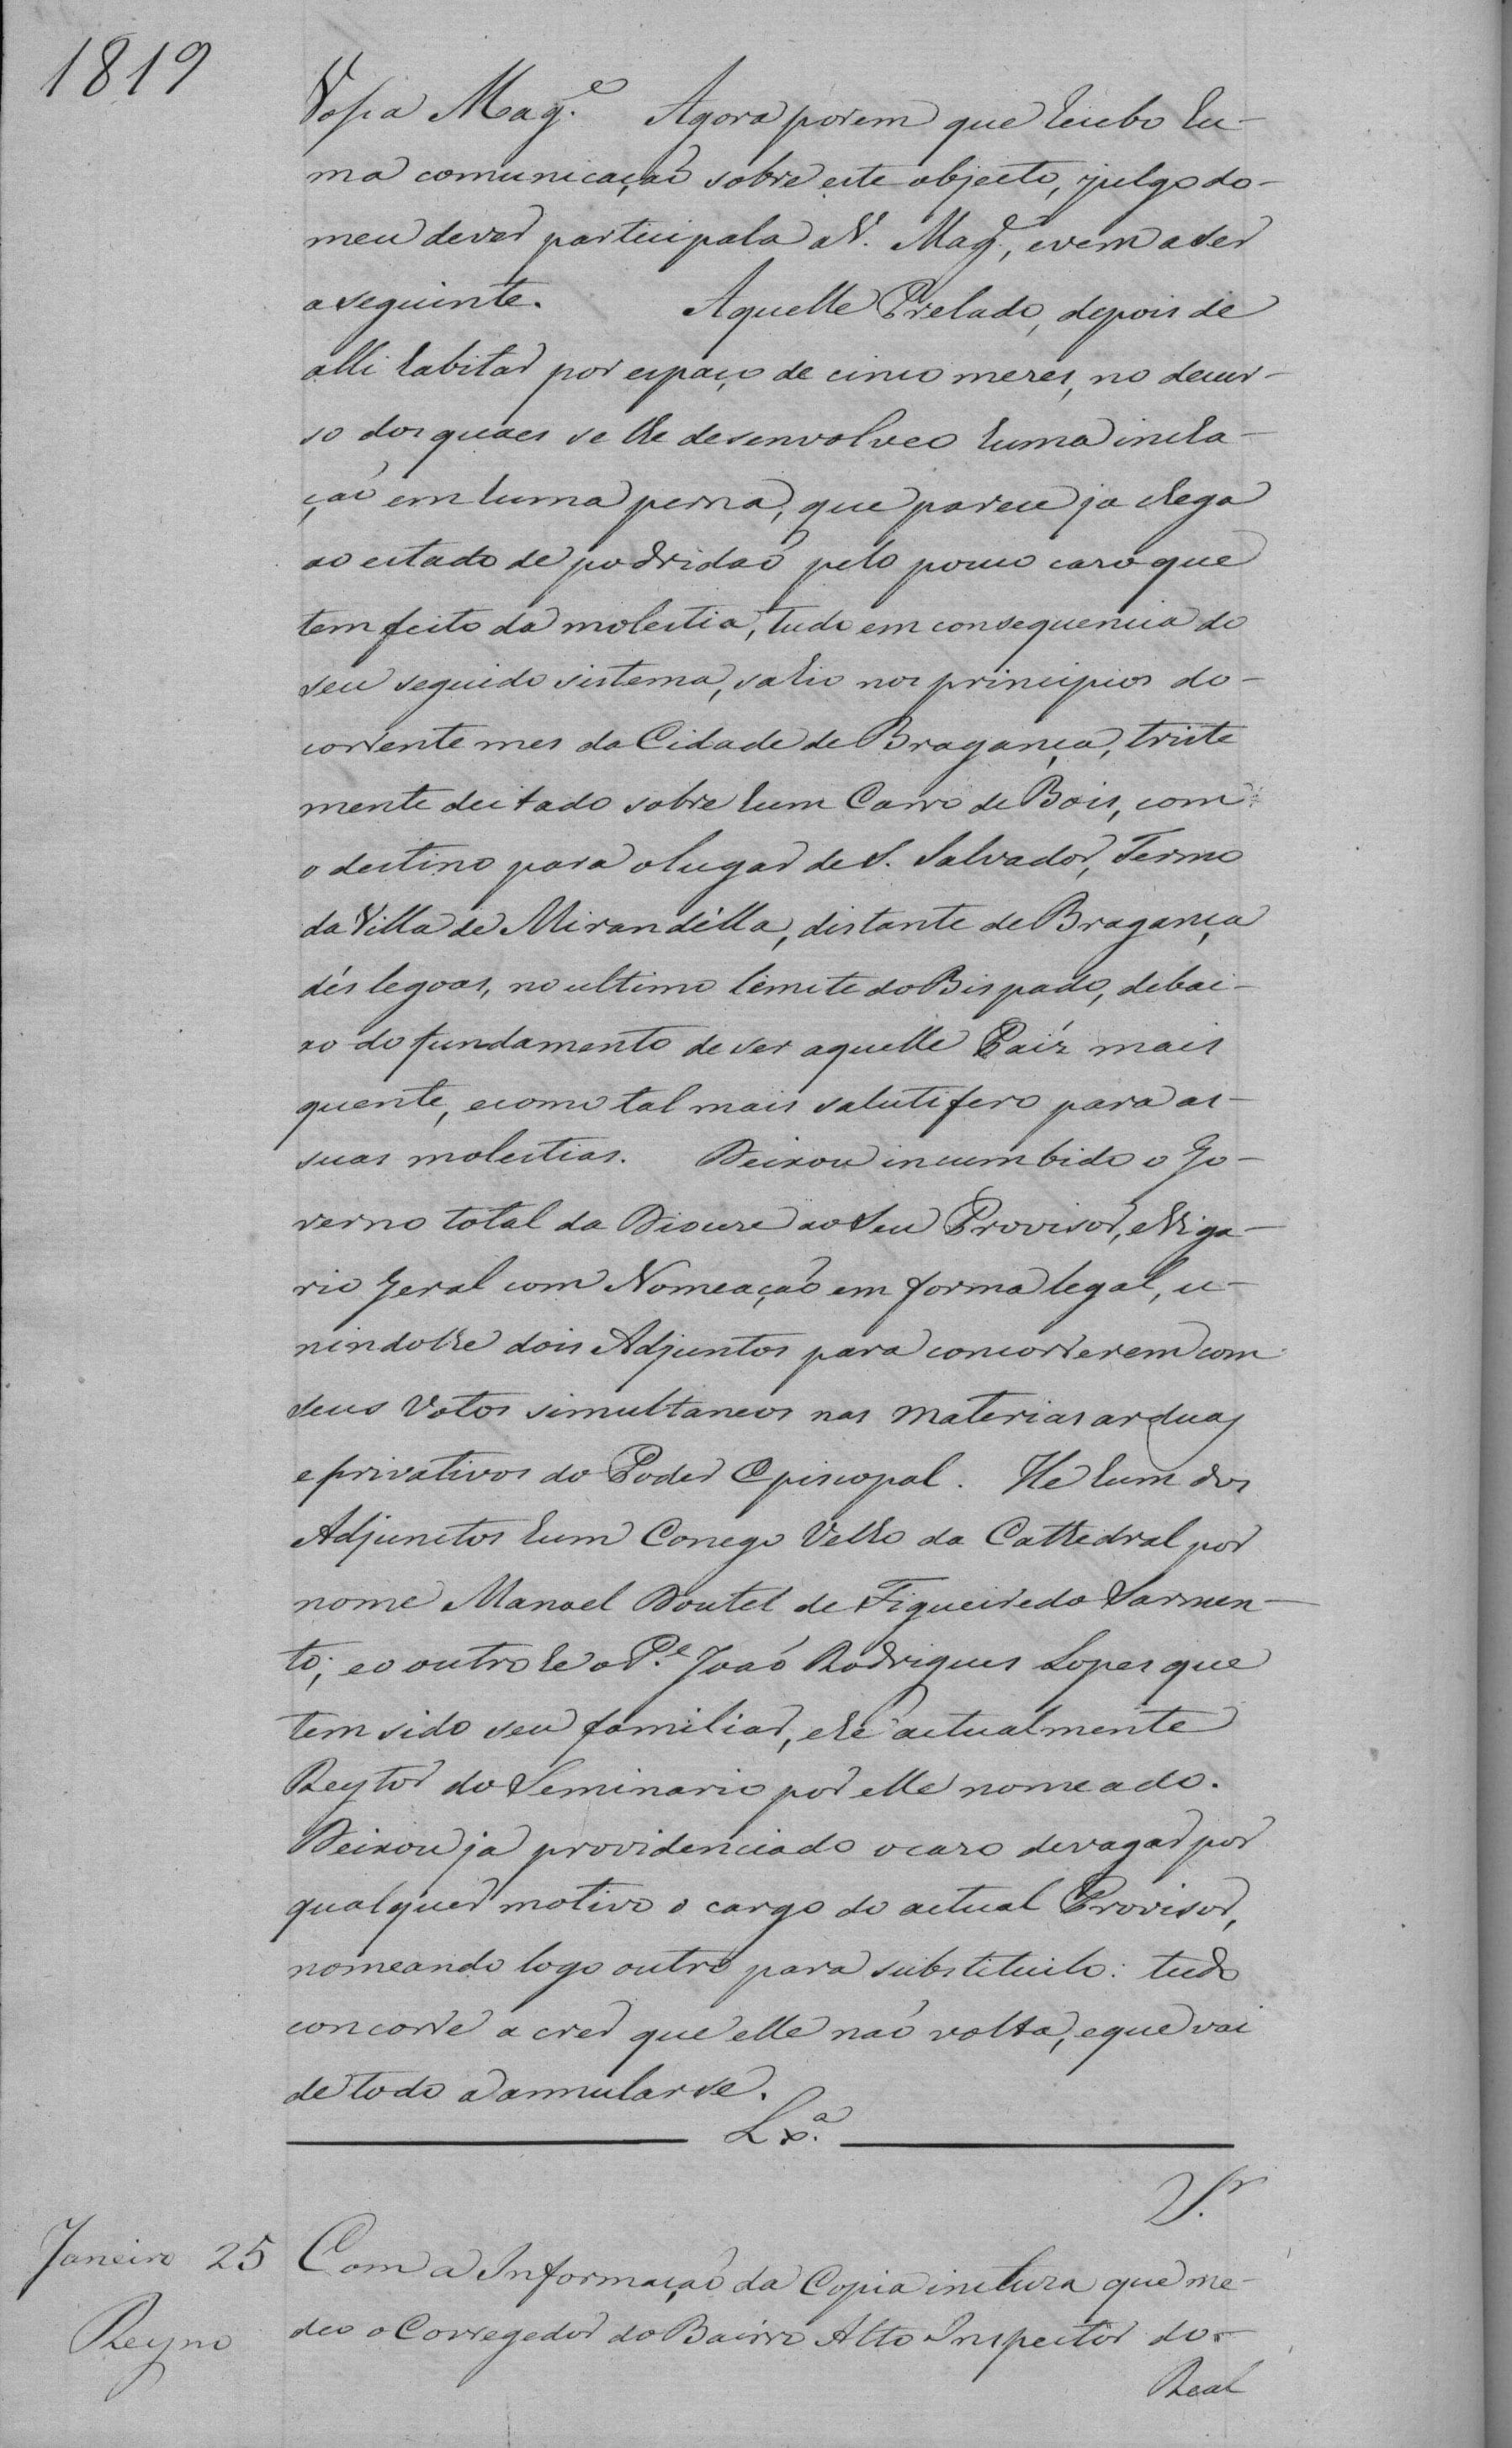 1819
Vossa Mag.e Agora porem que recebo hu-
ma comunicação sobre este objecto, julgo do-
meu dever participala a V. Mag.e, e vem a ser
a seguinte. Aquelle Prelado, depois de
alli habitar por espaço de cinco mezes, no decur-
so dos quaes se lhe desenvolveo huma incha-
ção em huma perna, que parece ja chega
ao estado de podridaõ pelo pouco caso que
tem feito da molestia, tudo em consequencia do
seu seguido sistema, sahio nos principios do-
corrente mes da Cidade de Bragança, triste
mente deitado sobre hum Carro de Bois, com
o destino para o lugar de S. Salvador, Termo
da Villa de Mirandélla, distante de Bragança
dés legoas, no ultimo limite do Bispado, debai-
xo do fundamento de ser aquelle Paiz mais
quente, e como tal mais salutifero para as-
suas molestias. Deixou incumbido o Go-
verno total da Diocese ao Seu Provisor, e Viga-
rio Geral com Nomeação em forma legal, u-
nindolhe dois Adjuntos para concorrerem com
seus Votos simultaneos nas materias arduas
e privativos do Poder Episcopal. He hum dos
Adjunctos hum Conego Velho da Cathedral por
nome Manoel Doutel de Figueiredo Sarmen-
to; e o outro he o P.e Joaõ Rodrigues Lopes que
tem sido seu familiar, e hé actualmente
Reytor do Seminario por elle nomeado.
Deixou ja providenciado o cazo de vagar por
qualquer motivo o cargo do actual Provisor,
nomeando logo outro para substituilo: tudo
concorre a crer que elle naõ volta, e que vai
de todo a annularse.
Lx.a
S.r
Janeiro 25 Com a Informaçaõ da Copia incluza que me-
Reyno deo o Corregedor do Bairro Alto Inspector do-
Real